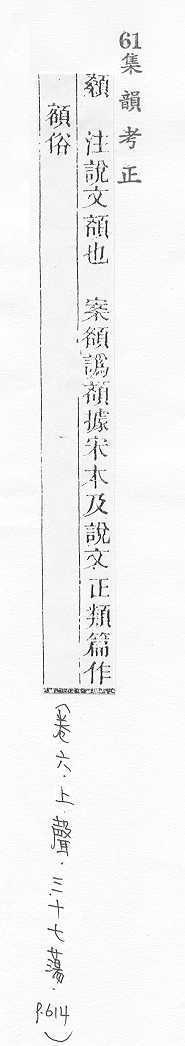 61
集韻考正
顙 注說文頟也 案頟譌額據宋本及說文正類篇作
額俗
(卷六.上聲.三十七蕩.
P.614)